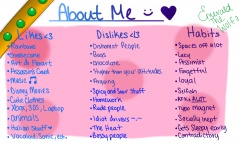 About Me
Emerald the Wolf
Likes <3
Rainbows
Art & Anart
Assassin's Creed
Music
Disney Movies
Cute Clothes
Xbox, 3DS, Laptop
Animals
Italian Stuff
Vocaloid, Sonic, etc.
Dislikes <\3
Dishonest People
Bugs
Chocolate
"Higher than you" Attitudes
Arguing
Spicy and Sour Stuff
Homework
Rude people
Idiot drivers -.-
The Heat
Bossy people
Habits
Spaces off alot
Lazy
Pessimist
Forgetful
Loyal
Selfish
AFK's ALOT
Video Magnet
Socially inept
Gets Sleepy easily
Contradictory